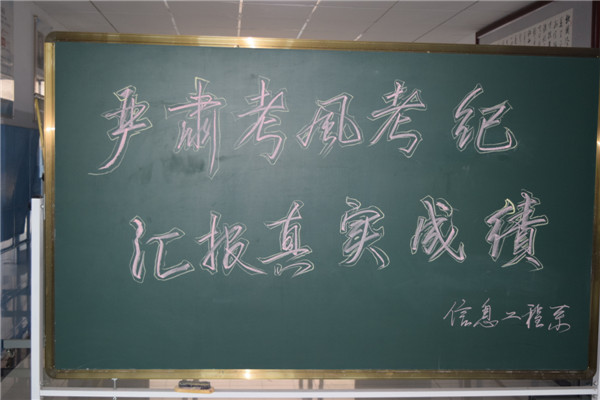 严肃考風考纪
汇报真实成绩
信息工程系